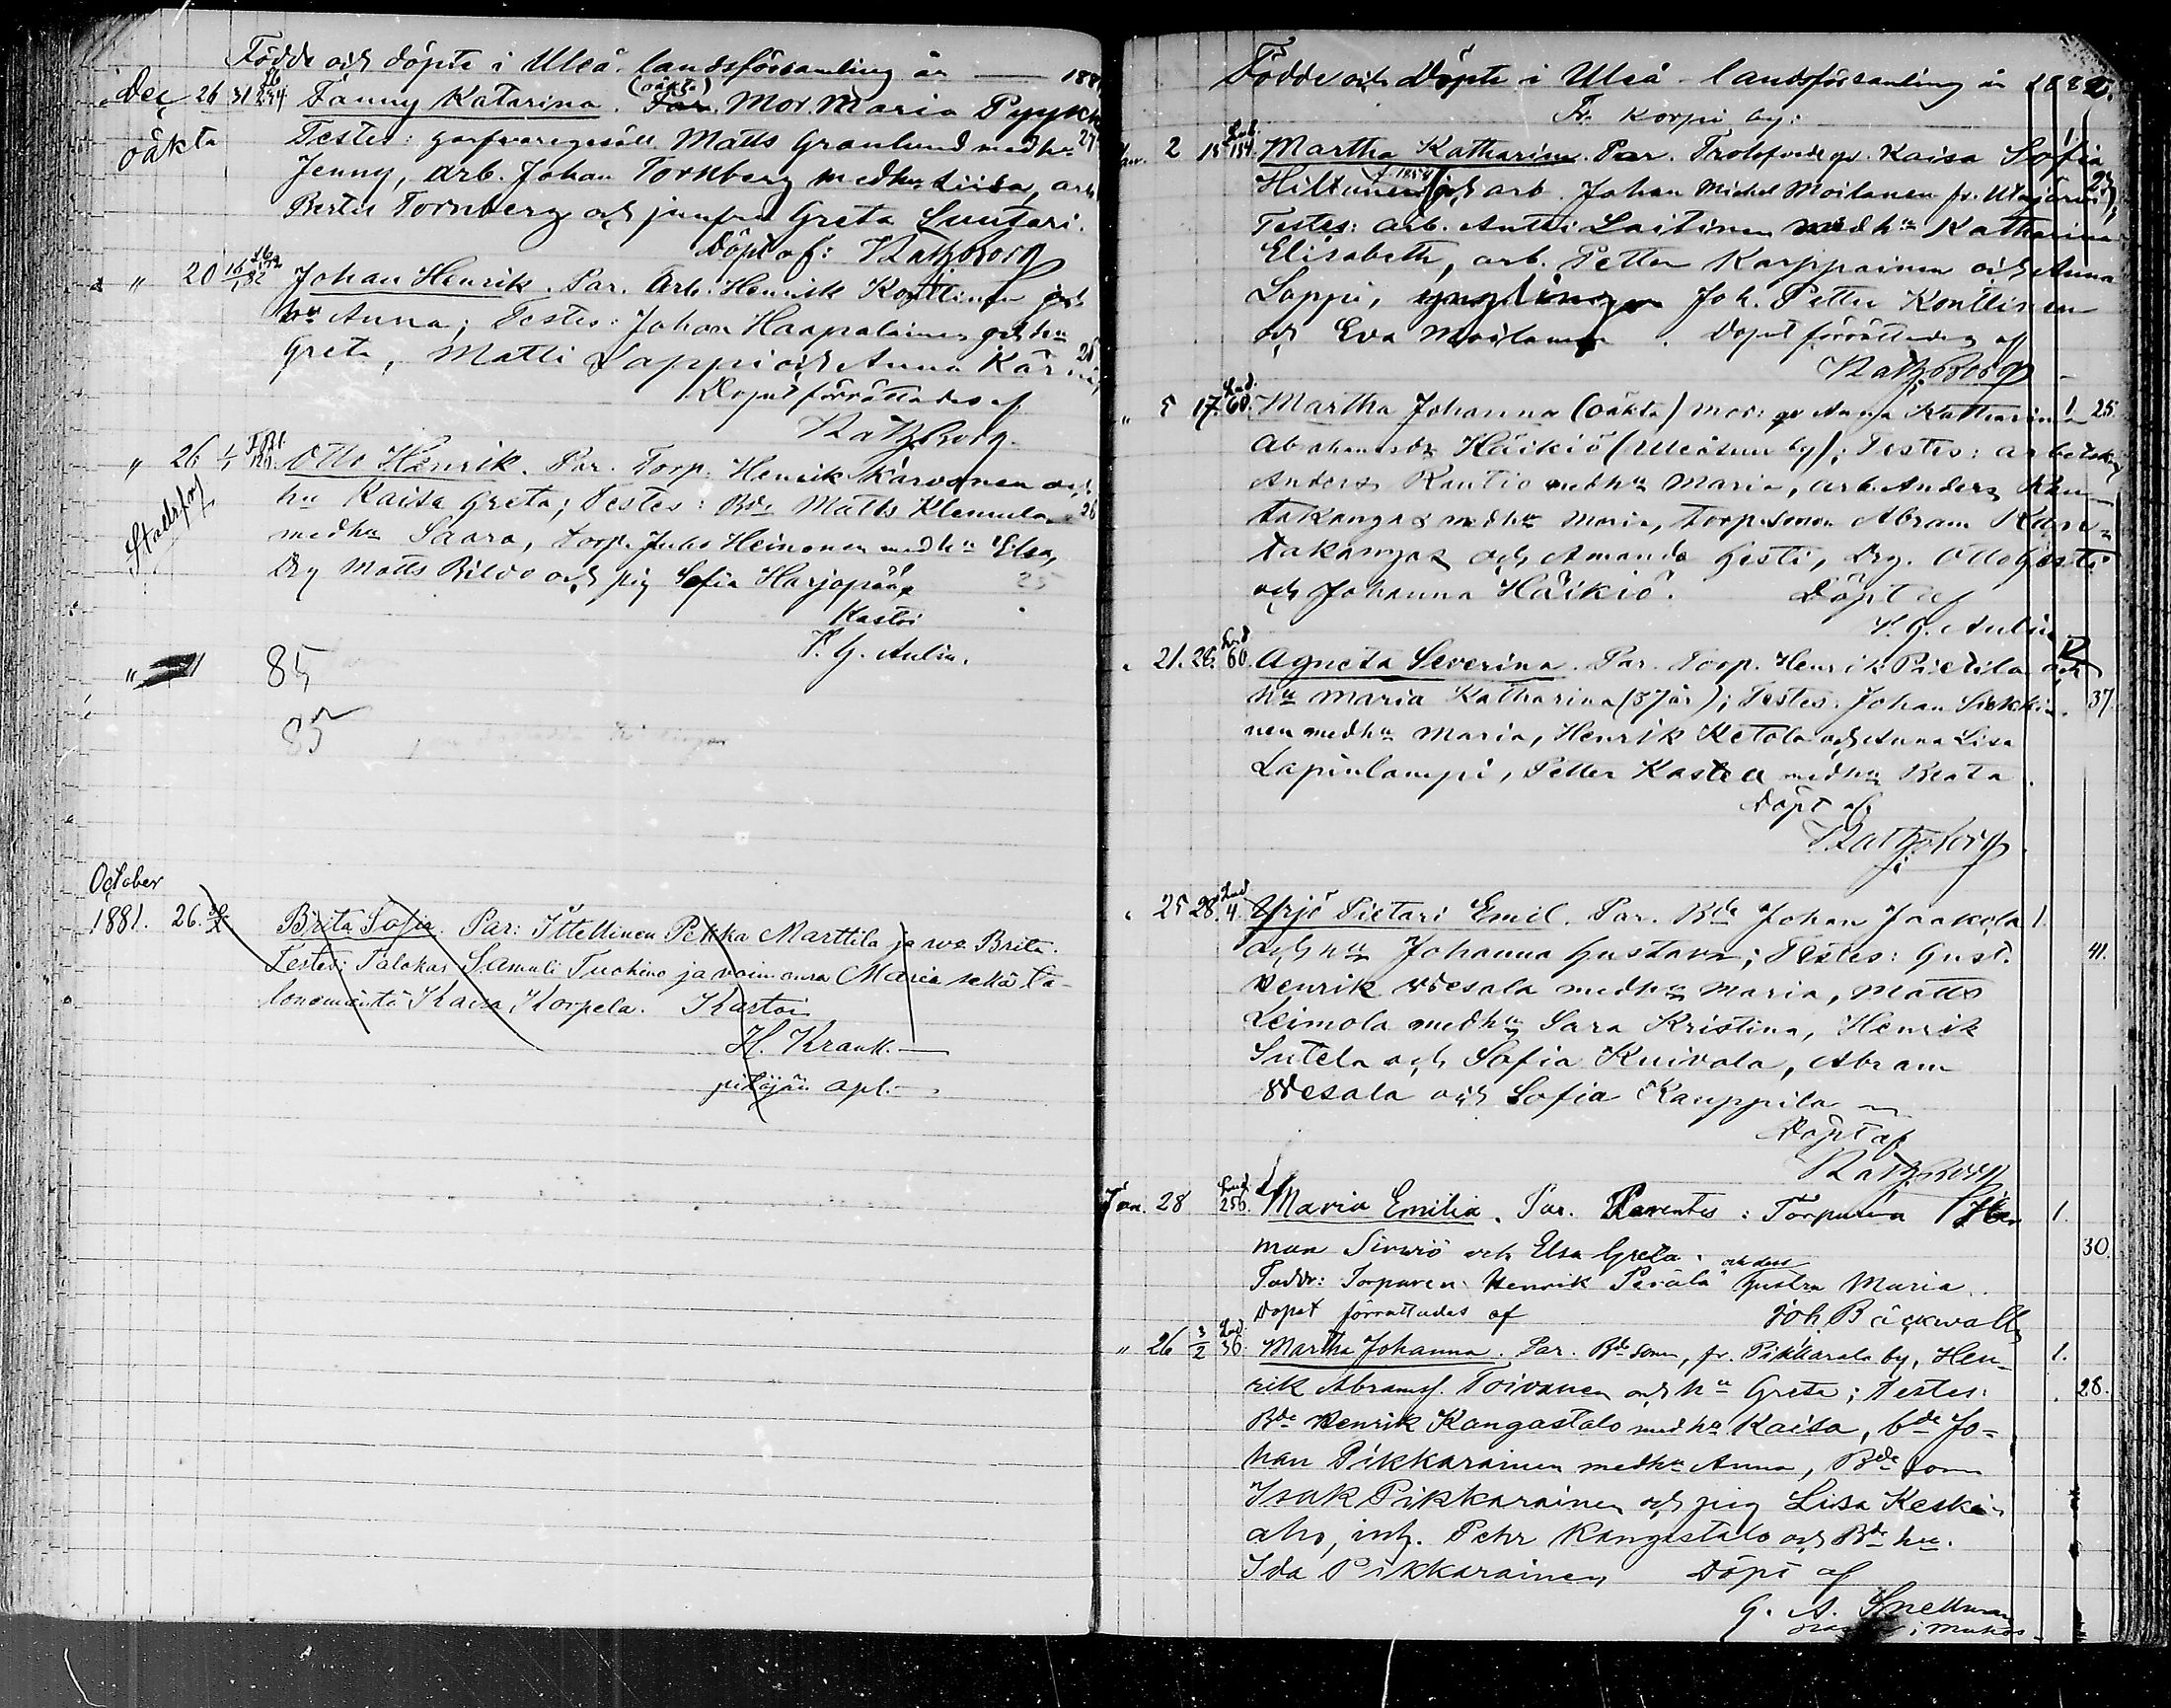 Födde och döpte i Uleå landsförsamling år — 188
Dec 26 31 234 Fanny Katarina. (oäkta) Far. Mor. Maria Pyykk
oäkta Testes: garfvaregesäll Matts Granlund med hu 27
Jenny, arb. Johan Tornberg med hu Liisa, arb
Bertel Tornberg och jungfru Greta Suutari.
Döpt af: Ratzborg
" 20 Johan Henrik. Par. Arb. Henrik Konttinen och
hu Anna; Testes: Johan Haapalainen och hu
Greta, Matti Lappi och Anna Kär 25
Dopet förrättades af
Ratzborg.
" 26 1/1 120. Otto Henrik. Par. Torp. Henrik Karvonen och
Stadsförs. hu Kaisa Greta; Testes: Bde Matts Klemula 26
med hu Saara, torp. Juho Heinonen med hu Elsa,
Drg Matts Rilvo och pig Sofia Harjopää
25
Kastoi
P. G. Aulin.
" 85
85
October
1881. 26. Brita Sofia. Par: Ittellinen Pekka Marttila ja wo Brita.
Testes: Talokas Samuli Tuohino ja vaimonsa Maria sekä ta-
lonemäntä Kaisa Korpela. Kastoi
H. Krank. —
pitäjän apl. —
Födde och Döpte i Uleå landsförsamling år 1882.
Fr. Korpi by:
Jan. 2 15 184. Martha Katharina. Par. Trolofvade qv. Kaisa Sofia
Hiltunen (f. 1858) och arb. Johan Michel Moilanen fr. Utajärvi, 23
Testes: arb. Antti Laitinen med hu Katharina
Elisabeth, arb. Petter Karppainen och Anna
Lappi, ynglingen Joh. Petter Konttinen
och Eva Moilanen. Dopet förrättades af
Ratzborg
" 5 17. 60. Martha Johanna (oäkta) mor: qv Anna Katharina 1 25.
Abrahamsdr Häikiö (Uleåsuu by); Testes: arbetskg
Anders Rautio med hu Maria, arb. Anders Kan-
takangas med hu Maria, Torp.sonen Abram Kan-
takangas och Amanda Gesti, Drg. Otto Gesti
och Johanna Häikiö. Döpt af
P. G. Aulin
" 21. 28. 60. Agneta Severina. Par. Torp. Henrik Pietilä och
hu Maria Katharina (37 år); Testes: Johan Sirkki- 37.
nen med hu Maria, Henrik Ketola och Anna Lisa
Lapinlampi, Petter Kastea med hu Beata
Döpt af
Ratzborg
" 25 28. 4. Yrjö Pietari Emil. Par. Bde Johan Jaakola 1.
och hu Johanna Gustava; Testes: Gust. 41.
Henrik Wesala med hu Maria, Matts
Leimola med hu Sara Kristina, Henrik
Sutela och Sofia Kuivala, Abram
Wesala och Sofia Kauppila
Döpt af
Ratzborg
Jan. 28 256. Maria Emilia. Par. Parentes: Torparen Her 1.
man Siuruö och Elsa Greta. 30.
Faddr: Torparen Henrik Perälä och dess hustru Maria.
Dopet förrättades af Joh. Bäckwall
" 26 3/2 36. Martha Johanna. Par. Bde son, fr. Pikkarala by, Hen- 1.
rik Abramss. Toivanen och hu Greta; Testes: 28.
Bde Henrik Kangastalo med hu Kaisa, bde Jo-
han Pikkarainen med hu Anna, Bde son
Isak Pikkarainen och pig Liisa Keski-
aho, inh. Pehr Kangastalo och Bde hu.
Ida Pikkarainen Döpt af
G. A. Snellman
i Muhos